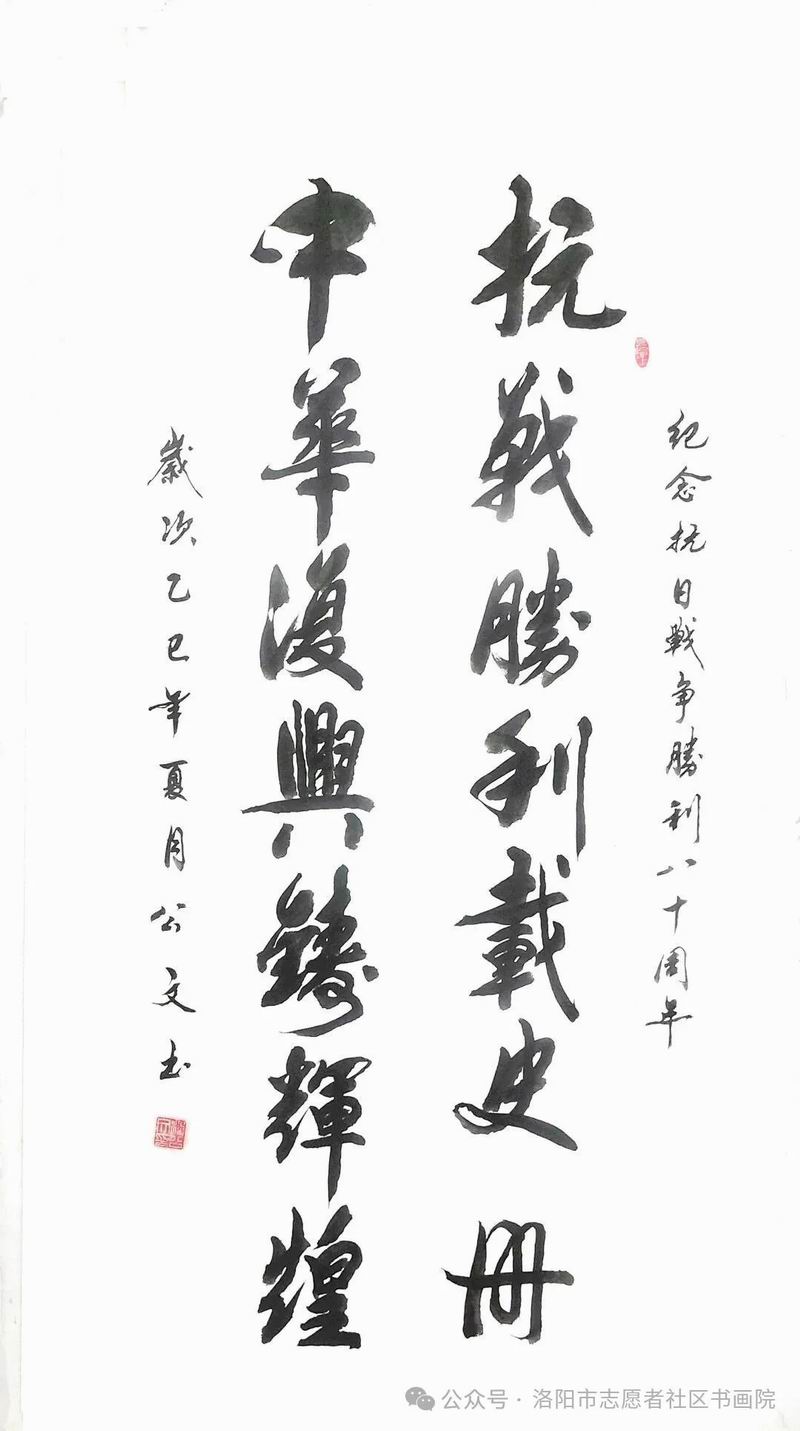 纪念抗日戰争勝利八十周年
抗戰勝利載史册
中華復興鑄輝煌
歲次乙巳年夏月公文书
公众号·洛阳市志愿者社区书画院